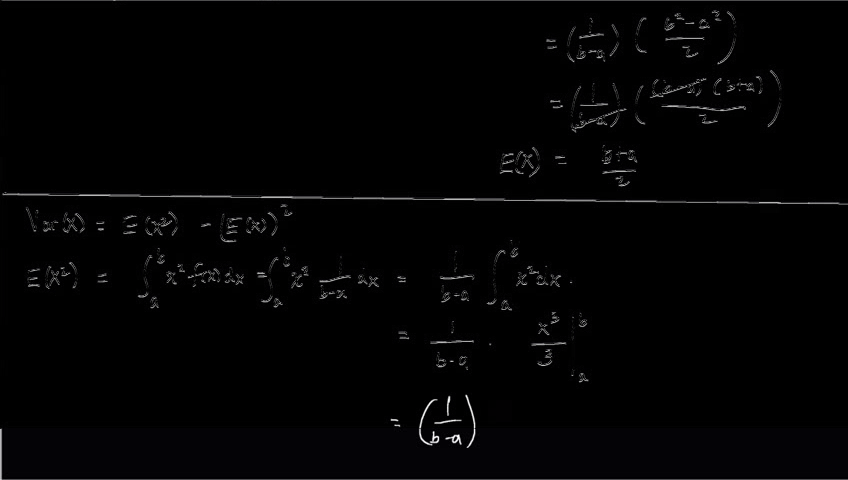 = (1/(b-a)) ((b²-a²)/2)
= (1/(b-a)) ((b-a)(b+a)/2)
E(X) = (b+a)/2
Var(X) = E(X²) - (E(X))²
E(X²) = ∫_a^b x² f(x) dx = ∫_a^b x² 1/(b-a) dx = 1/(b-a) ∫_a^b x² dx.
= 1/(b-a) · x³/3 |_a^b
= (1/(b-a))